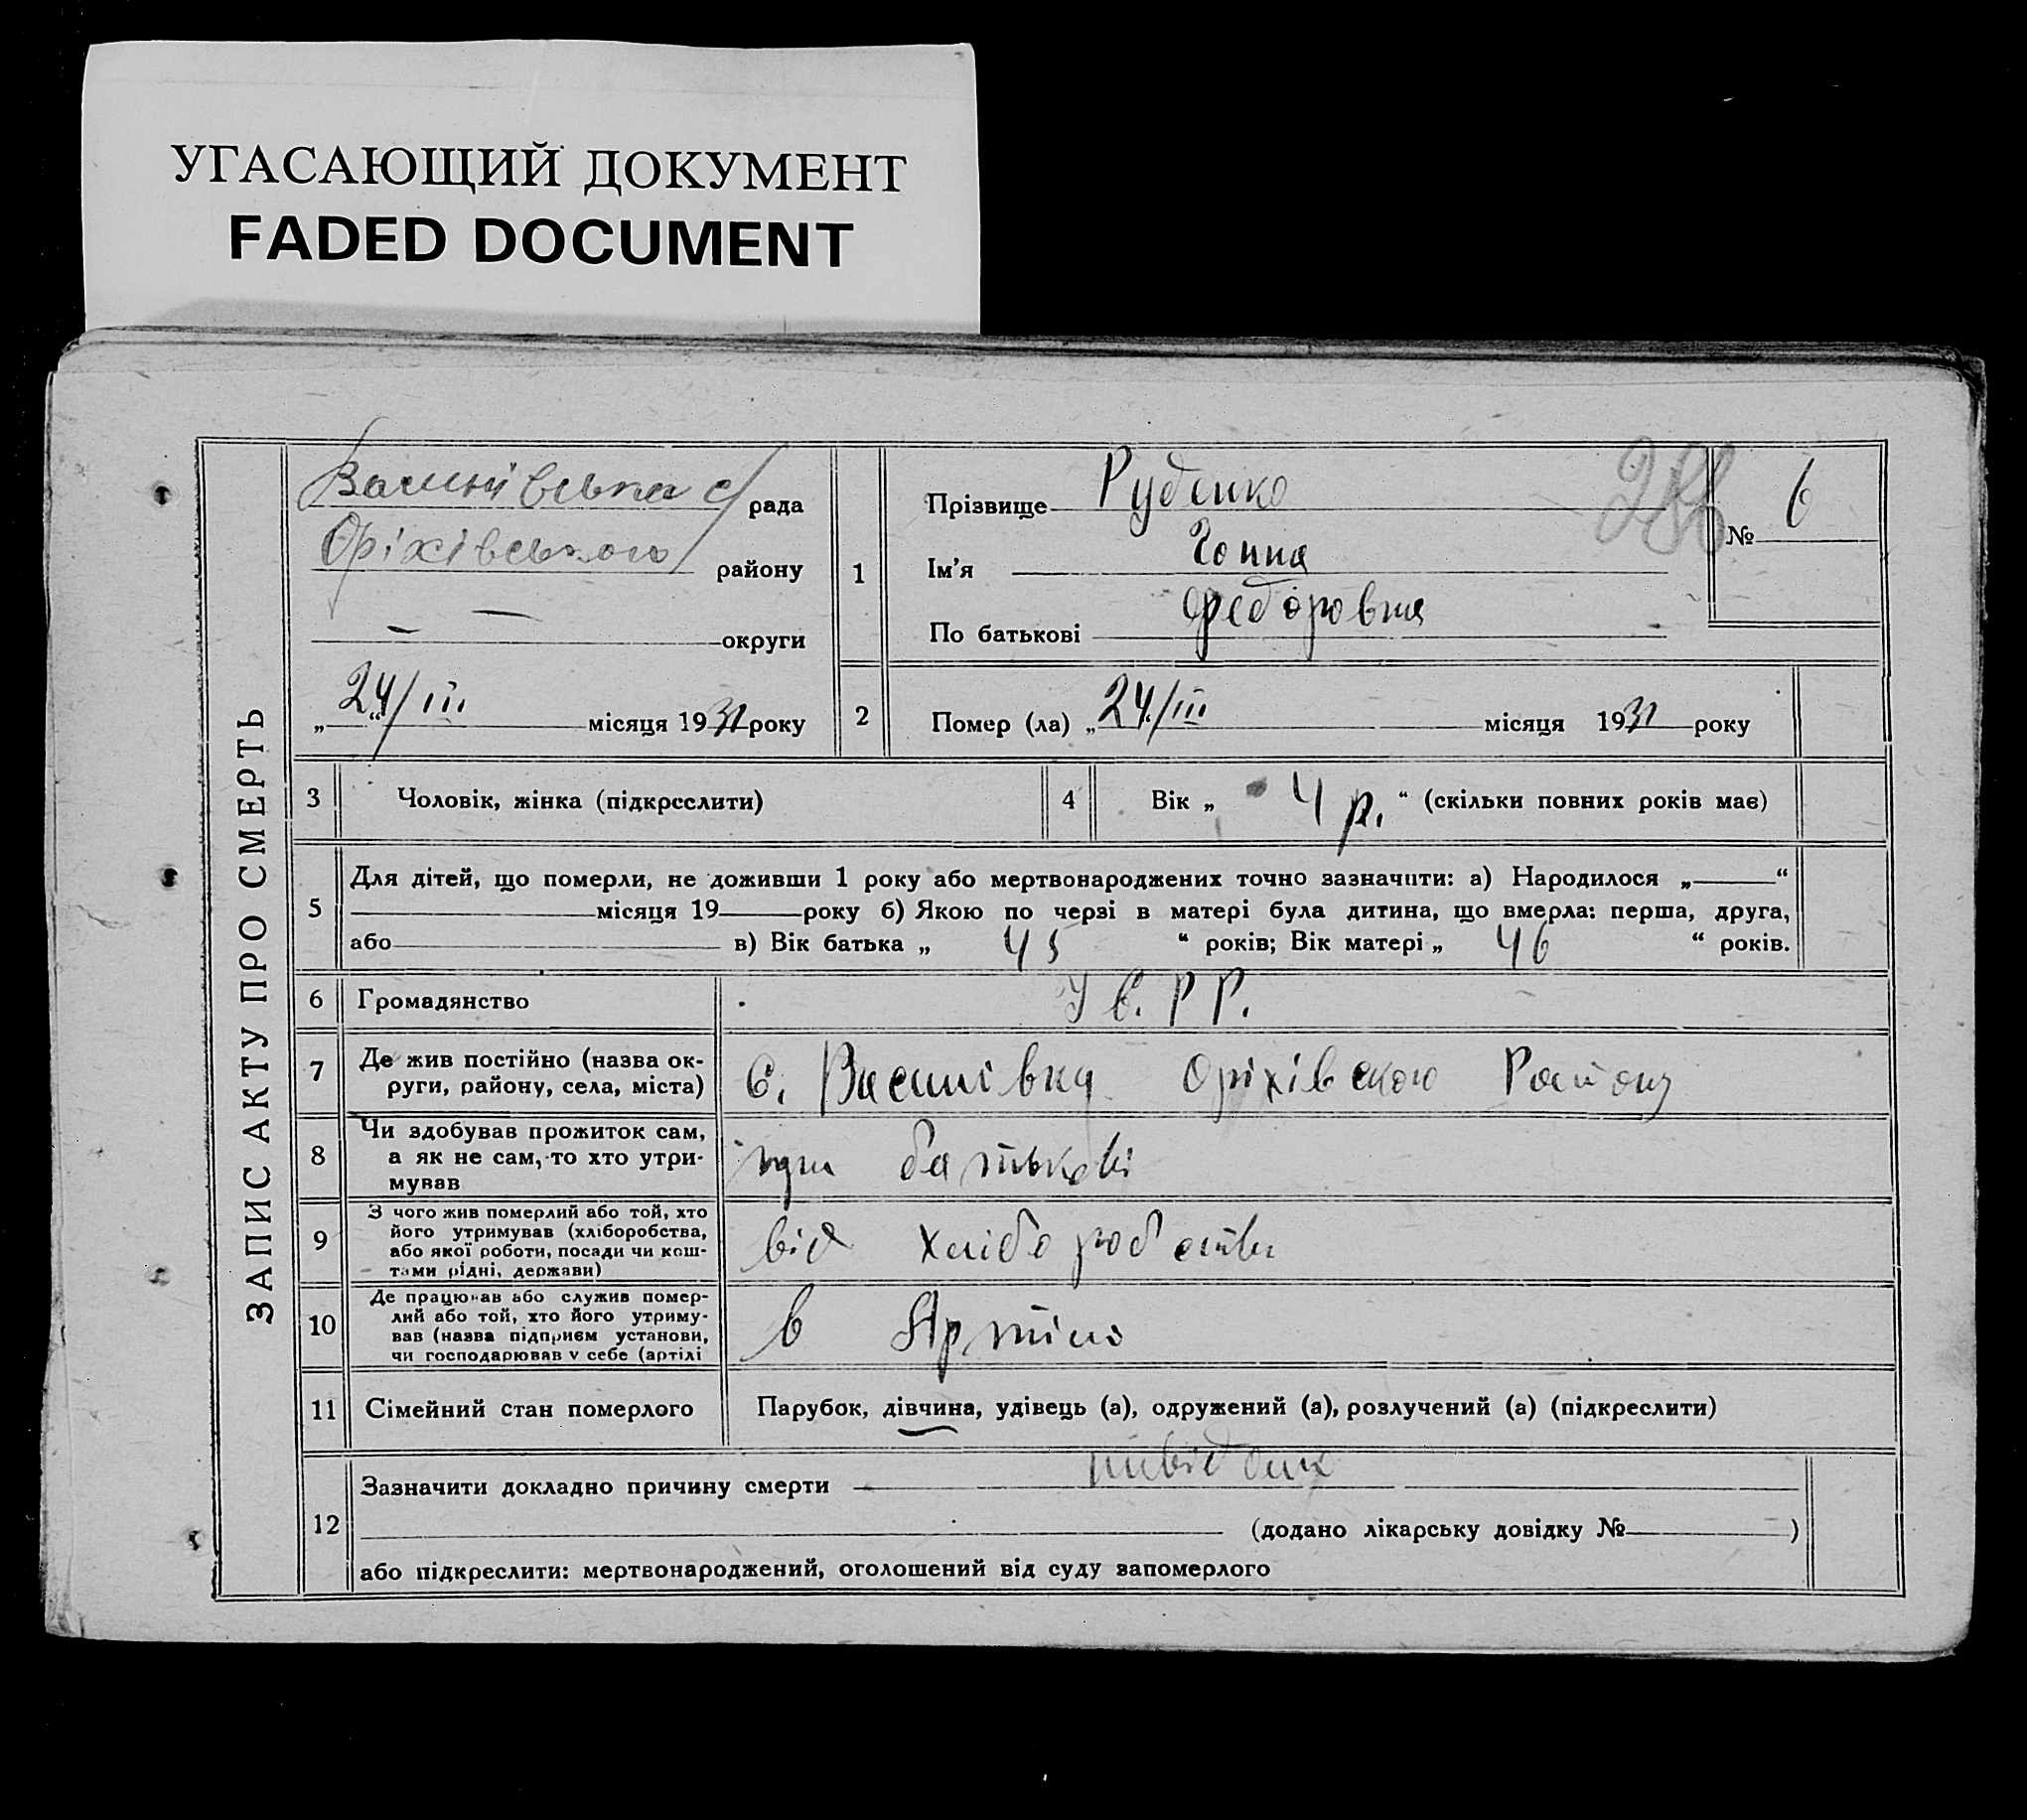 УГАСАЮЩИЙ ДОКУМЕНТ
FADED DOCUMENT
ЗАПИС АКТУ ПРО СМЕРТЬ
рада
Оріхівського району
— округи
„24/III“ місяця 1931 року
1
Прізвище Руденко
Ім'я Ганна
По батькові Федоровна
№ 6
2 Помер (ла) „24/III місяця 1931 року
3 Чоловік, жінка (підкреслити)
4 Вік „ 4 р. “ (скільки повних років має)
5 Для дітей, що померли, не доживши 1 року або мертвонароджених точно зазначити: а) Народилося „ “
місяця 19 року б) Якою по черзі в матері була дитина, що вмерла: перша, друга,
або в) Вік батька „ 45 “ років; Вік матері „ 46 “ років.
6 Громадянство У С. Р Р.
7 Де жив постійно (назва ок-
руги, району, села, міста) С. Оріхівского Району
8 Чи здобував прожиток сам,
а як не сам, то хто утри-
мував при батькові
9 З чого жив померлий або той, хто
його утримував (хліборобства,
або якої роботи, посади чи кош-
тами рідні, держави) від хліборобства
10 Де працював або служив помер-
лий або той, хто його утриму-
вав (назва підприєм установи,
чи господарював у себе (артілі в Артілі
11 Сімейний стан померлого Парубок, дівчина, удівець (а), одружений (а), розлучений (а) (підкреслити)
12 Зазначити докладно причину смерти
(додано лікарську довідку № )
або підкреслити: мертвонароджений, оголошений від суду запомерлого